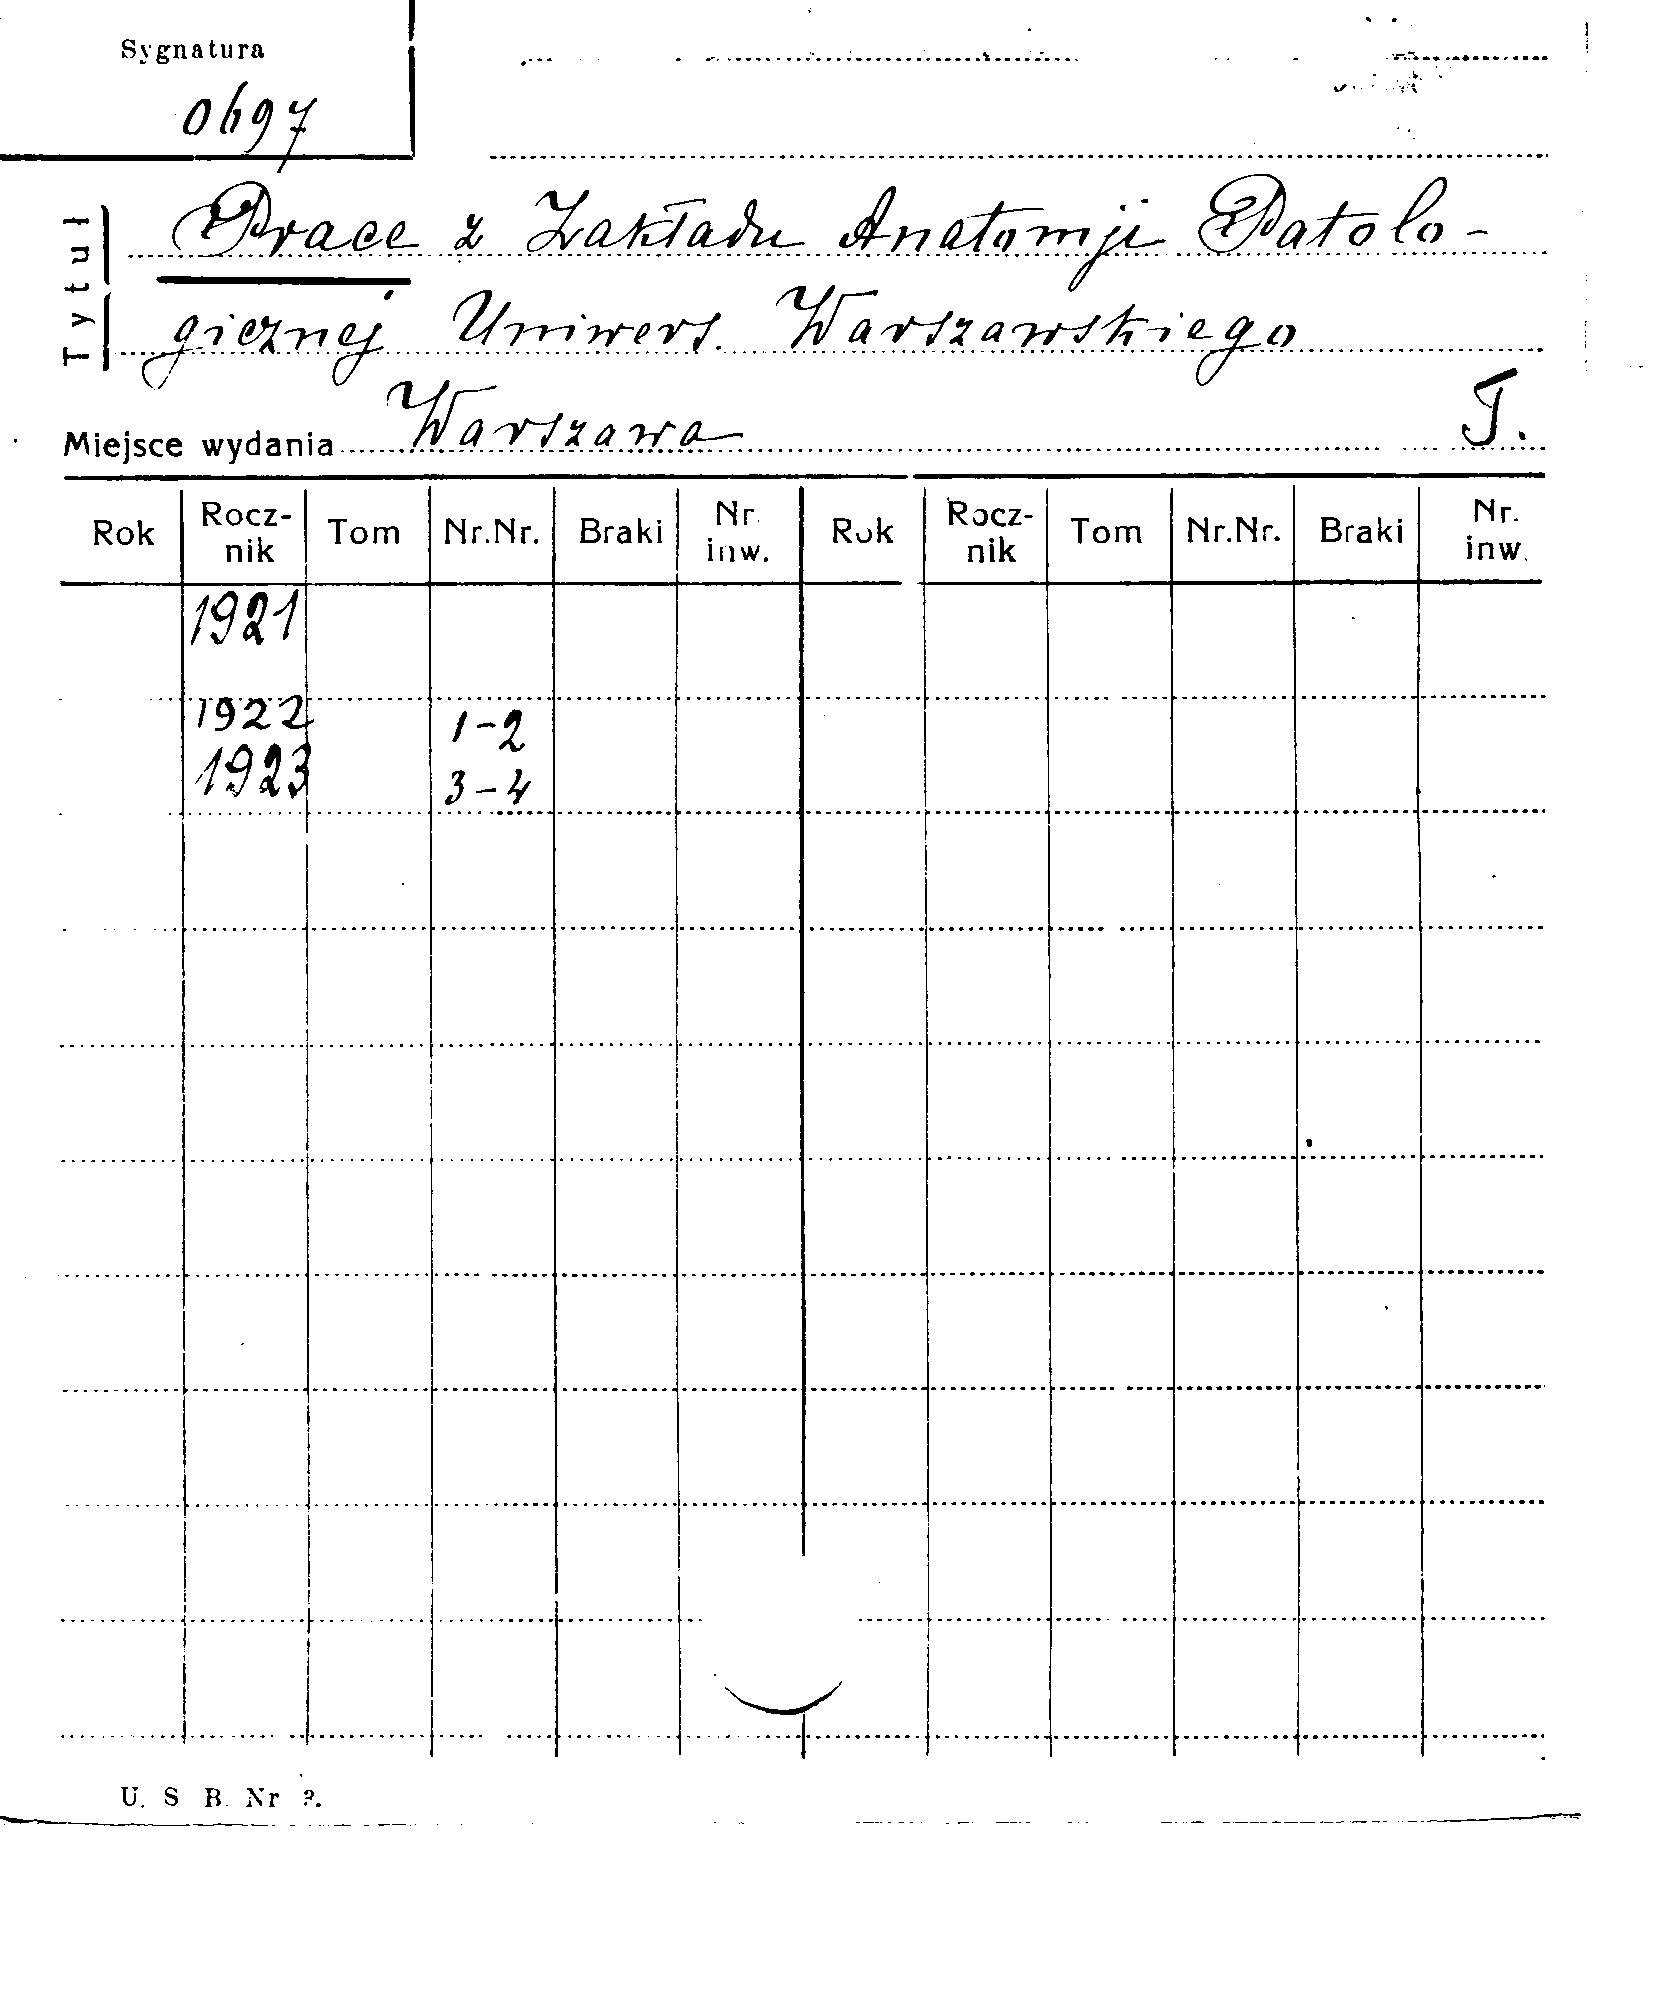 Sygnatura
0697
Tytuł
Prace z Zakładu Anatomji Patolo-
gicznej Uniwers. Warszawskiego
Miejsce wydania Warszawa T.
Rok Rocz- Tom Nr.Nr. Braki Nr. Rok Rocz- Tom Nr.Nr. Braki Nr.
nik inw. nik inw.
1921
1922 1-2
1923 3-4
U. S. B. Nr